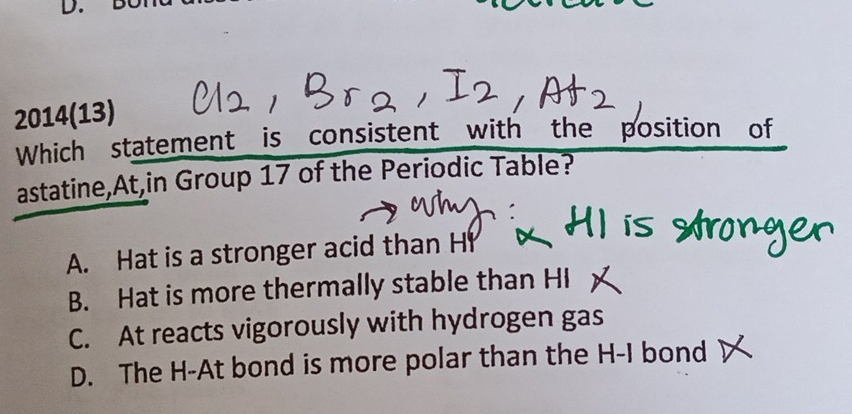 D.
2014(13) Cl2, Br2, I2, At2,
Which statement is consistent with the position of
astatine,At,in Group 17 of the Periodic Table?
→ why :
A. Hat is a stronger acid than HI × HI is stronger
B. Hat is more thermally stable than HI ×
C. At reacts vigorously with hydrogen gas
D. The H-At bond is more polar than the H-I bond ×